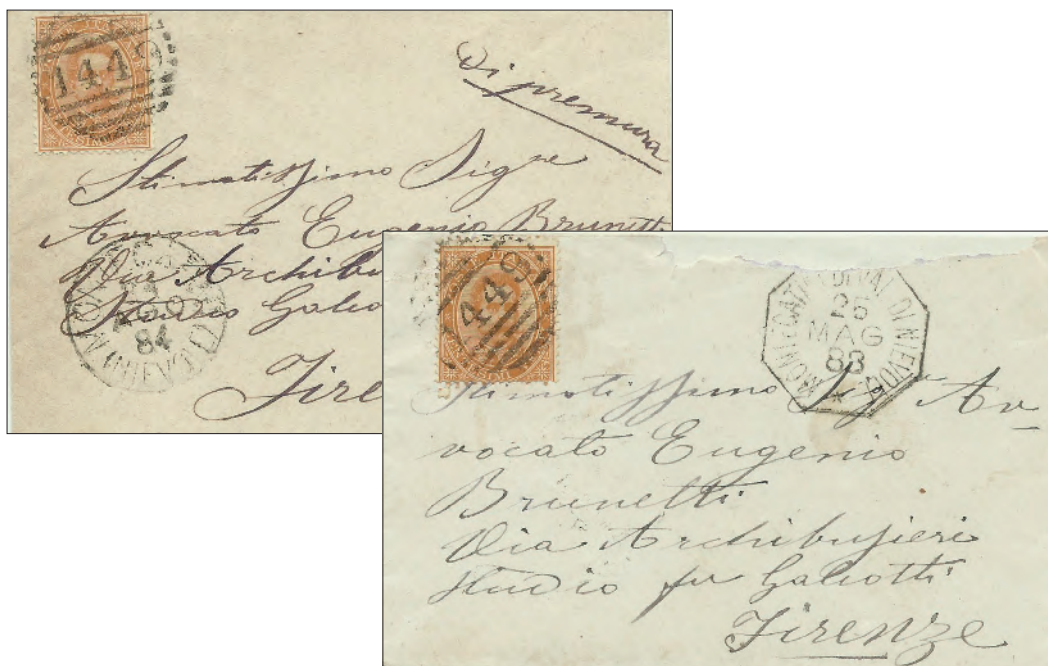 1442
Di premura
Stimatissimo Sig.re
Avvocato Eugenio Brunetti
Via Archibu
Studio Galeo
Fire
84
1440
MONTECATINI DI VAL DI NIEVOLE
25
MAG
88
Stimatissimo Sig. Av-
vocato Eugenio
Brunetti
Via Archibusieri
Studio fu Galeotti
Firenze